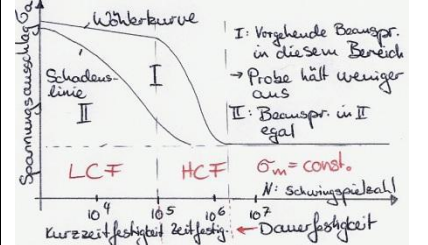 Spannungsausschlag σa
Wöhlerkurve
Schadens-
linie
I
II
I: Vorgehende Beanspr.
in diesem Bereich
→ Probe hält weniger
aus
II: Beanspr. in II
egal
LCF
HCF
σm = const.
N: Schwingspielzahl
10⁴
10⁵
10⁶
10⁷
Kurzzeitfestigkeit
Zeitfestig.
← Dauerfestigkeit